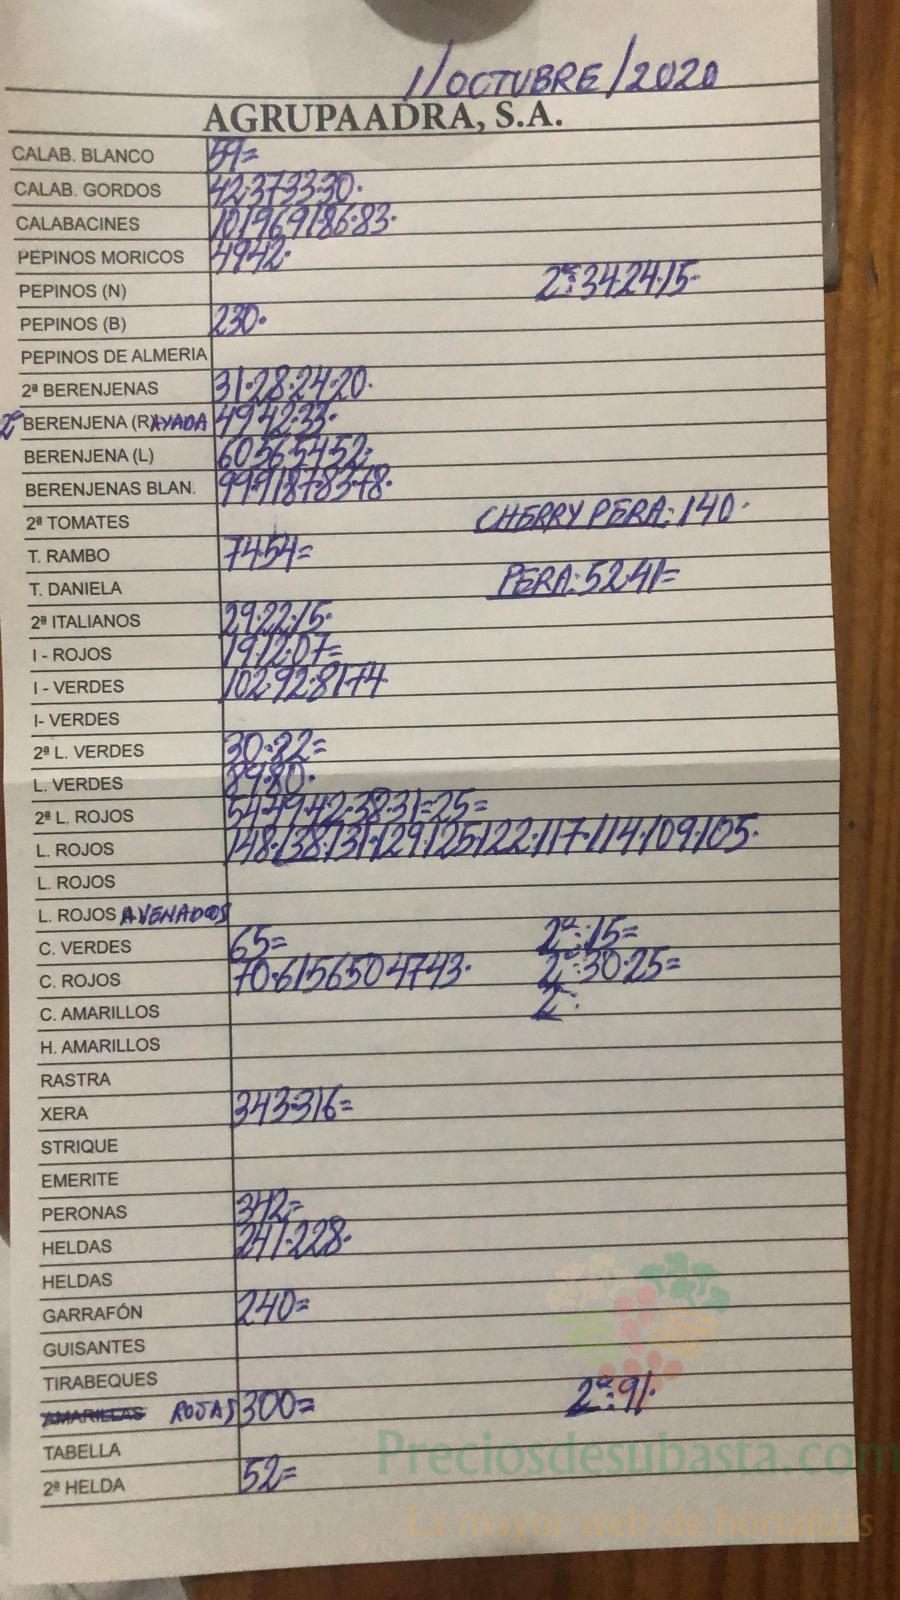 1/OCTUBRE/2020
AGRUPAADRA, S.A.
CALAB. BLANCO 59=
CALAB. GORDOS 42·37·33·30·
CALABACINES 101·96·91·86·83·
PEPINOS MORICOS 49·42·
PEPINOS (N) 2ª:34·24·15·
PEPINOS (B) 230·
PEPINOS DE ALMERIA
2ª BERENJENAS 31·28·24·20·
2ª BERENJENA (RAYADA 49·42·33·
BERENJENA (L) 60·56·54·52·
BERENJENAS BLAN. 99·91·87·83·78·
2ª TOMATES CHERRY PERA: 140·
T. RAMBO 74·54=
T. DANIELA PERA: 52·41=
2ª ITALIANOS 29·22·15·
I - ROJOS 19·12·07=
I - VERDES 102·92·81·74
I- VERDES
2ª L. VERDES 30·22=
L. VERDES 89·80·
2ª L. ROJOS 54·49·42·38·31=25=
L. ROJOS 148·138·131·129·125·122·117·114·109·105·
L. ROJOS
L. ROJOS AVENADOS
C. VERDES 65= 2ª:15=
C. ROJOS 70·61·56·50·47·43· 2ª:30·25=
C. AMARILLOS 2ª:
H. AMARILLOS
RASTRA
XERA 343·316=
STRIQUE
EMERITE
PERONAS 342=
HELDAS 241·228·
HELDAS
GARRAFÓN 240=
GUISANTES
TIRABEQUES
AMARILLAS ROJAS 300= 2ª:91·
TABELLA
2ª HELDA 52=
Preciosdesubasta.com
La mayor web de hortalizas